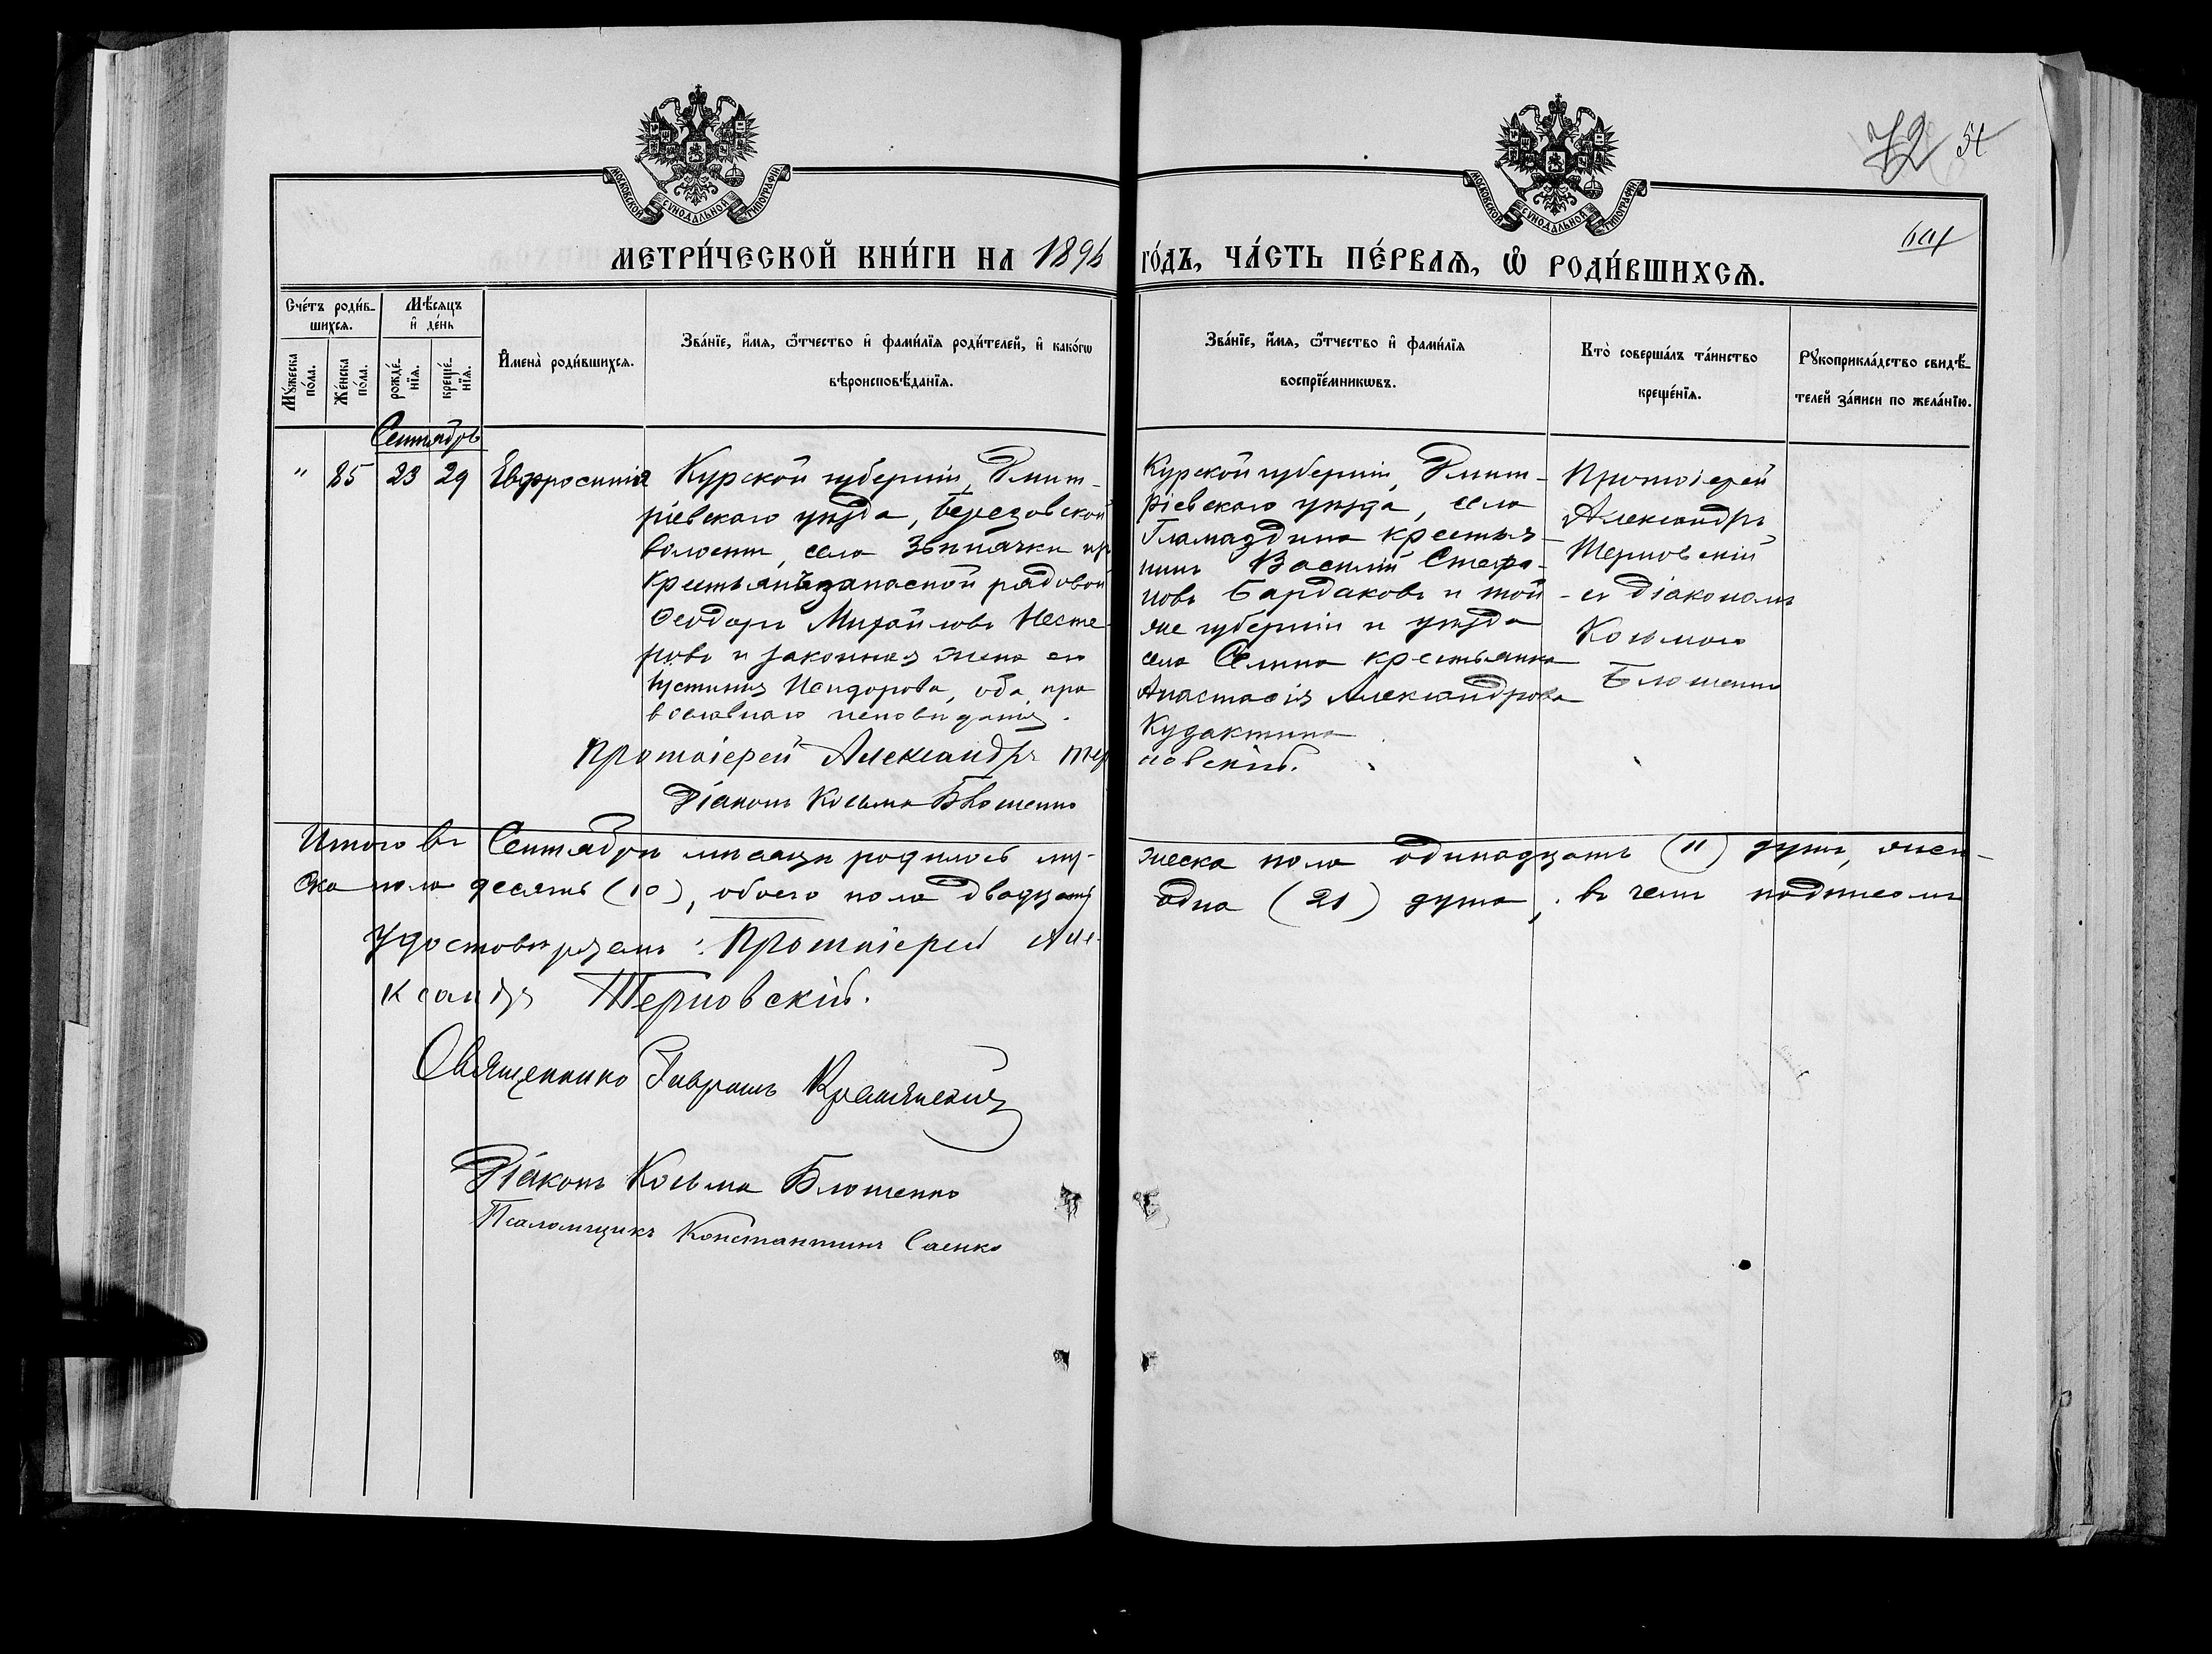 МОСКОВСКОЙ СѴНОДАЛЬНОЙ ТИПОГРАФІИ
МОСКОВСКОЙ СѴНОДАЛЬНОЙ ТИПОГРАФІИ
72 54
МЕТРИ́ЧЕСКОЙ КНИ́ГИ НА 1896 ГО́ДЪ, ЧА́СТЬ ПЕ́РВАѦ, Ѡ҆ РОДИ́ВШИХСѦ.
Сче́тъ роди́в-
шихся.
Мꙋ́жеска по́ла.
Же́нска по́ла.
Мѣ́сяцъ и҆ де́нь
рожде́-
нїя.
креще́-
нїя.
И҆мена̀ роди́вшихся.
Зва́нїе, и҆́мя, ѻ҆́тчество и҆ фами́лїя роди́телей, и҆ како́гѡ
вѣроисповѣ́данїя.
Зва́нїе, и҆́мя, ѻ҆́тчество и҆ фами́лїя
воспрїе́мникѡвъ.
Кто̀ соверша́лъ та́инство
креще́нїя.
Рꙋкоприкла́дство свидѣ́-
телей за́писи по жела́нїю.
Сентябрь
" 85 23 29 Евфросинія
Курской губерніи, Дмит-
ріевскаго уѣзда, Березовской
волости, села Звѣнячки
крестьянинъ запасной рядовой
Ѳеодоръ Михайловъ Несте-
ровъ и законная жена его
Іустинія Исидорова, оба пра
вославнаго исповѣданія.
Курской губерніи, Дмит-
ріевскаго уѣзда, села
Гламаздина крестья-
нинъ Василій Стефа-
новъ Бардаковъ и той
же губерніи и уѣзда
села Селина крестьянка
Анастасія Александрова
Кудактина
Протоіерей
Александръ
Терновскій
съ діакономъ
Косьмою
Блошенко
Протоіерей Александръ Терновскій.
Діаконъ Косьма Блошенко
Итого въ Сентябрѣ мѣсяцѣ родилось му-
жеска пола одинадцать (11) душъ, жен-
ска пола десять (10), обоего пола двадцать
одна (21) душа, въ чемъ подписомъ
Удостовѣряемъ: Протоіерей Але-
ксандръ Терновскій.
Священникъ Гавріилъ
Діаконъ Косьма Блошенко
Псаломщикъ Константинъ Саенко